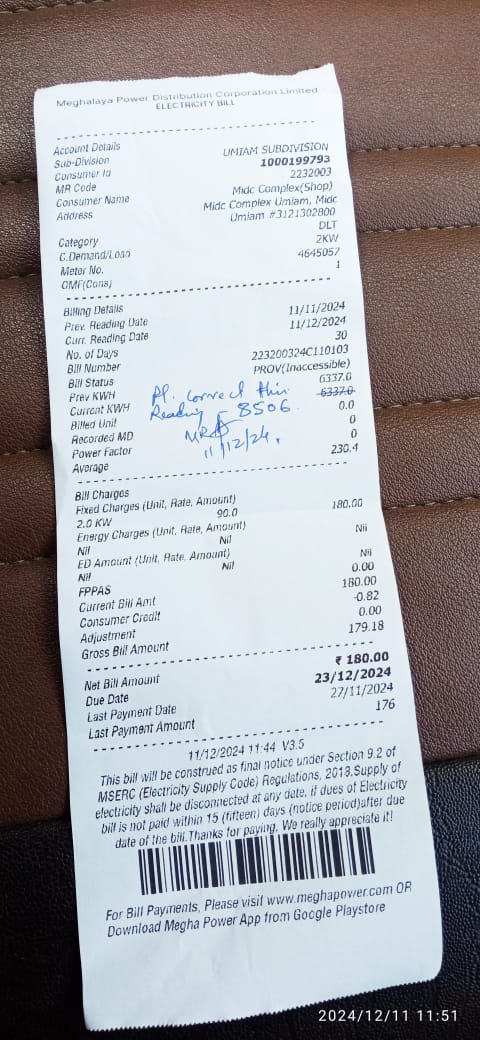 Meghalaya Power Distribution Corporation Limited
ELECTRICITY BILL
Account Details
Sub-Division UMIAM SUBDIVISION
Consumer Id 1000199793
MR Code 2232003
Consumer Name Midc Complex(Shop)
Address Midc Complex Umiam, Midc
Umiam #3121302800
Category DLT
C.Demand/Load 2KW
Meter No. 4645057
OMF(Cons) 1
Billing Details
Prev. Reading Date 11/11/2024
Curr. Reading Date 11/12/2024
No. of Days 30
Bill Number 223200324C110103
Bill Status PROV(Inaccessible)
Prev KWH 6337.0
Current KWH 6337.0
Billed Unit 0.0
Recorded MD 0
Power Factor 0
Average 230.4
Pl. correct this
Reading - 8506.
MR
11/12/24.
Bill Charges
Fixed Charges (Unit, Rate, Amount)
2.0 KW 90.0 180.00
Energy Charges (Unit, Rate, Amount)
Nil Nil Nil
ED Amount (Unit, Rate, Amount)
Nil Nil Nil
FPPAS 0.00
Current Bill Amt 180.00
Consumer Credit -0.82
Adjustment 0.00
Gross Bill Amount 179.18
Net Bill Amount ₹ 180.00
Due Date 23/12/2024
Last Payment Date 27/11/2024
Last Payment Amount 176
11/12/2024 11:44 V3.5
This bill will be construed as final notice under Section 9.2 of
MSERC (Electricity Supply Code) Regulations, 2018.Supply of
electricity shall be disconnected at any date, if dues of Electricity
bill is not paid within 15 (fifteen) days (notice period)after due
date of the bill.Thanks for paying, We really appreciate it!
For Bill Payments, Please visit www.meghapower.com OR
Download Megha Power App from Google Playstore
2024/12/11 11:51